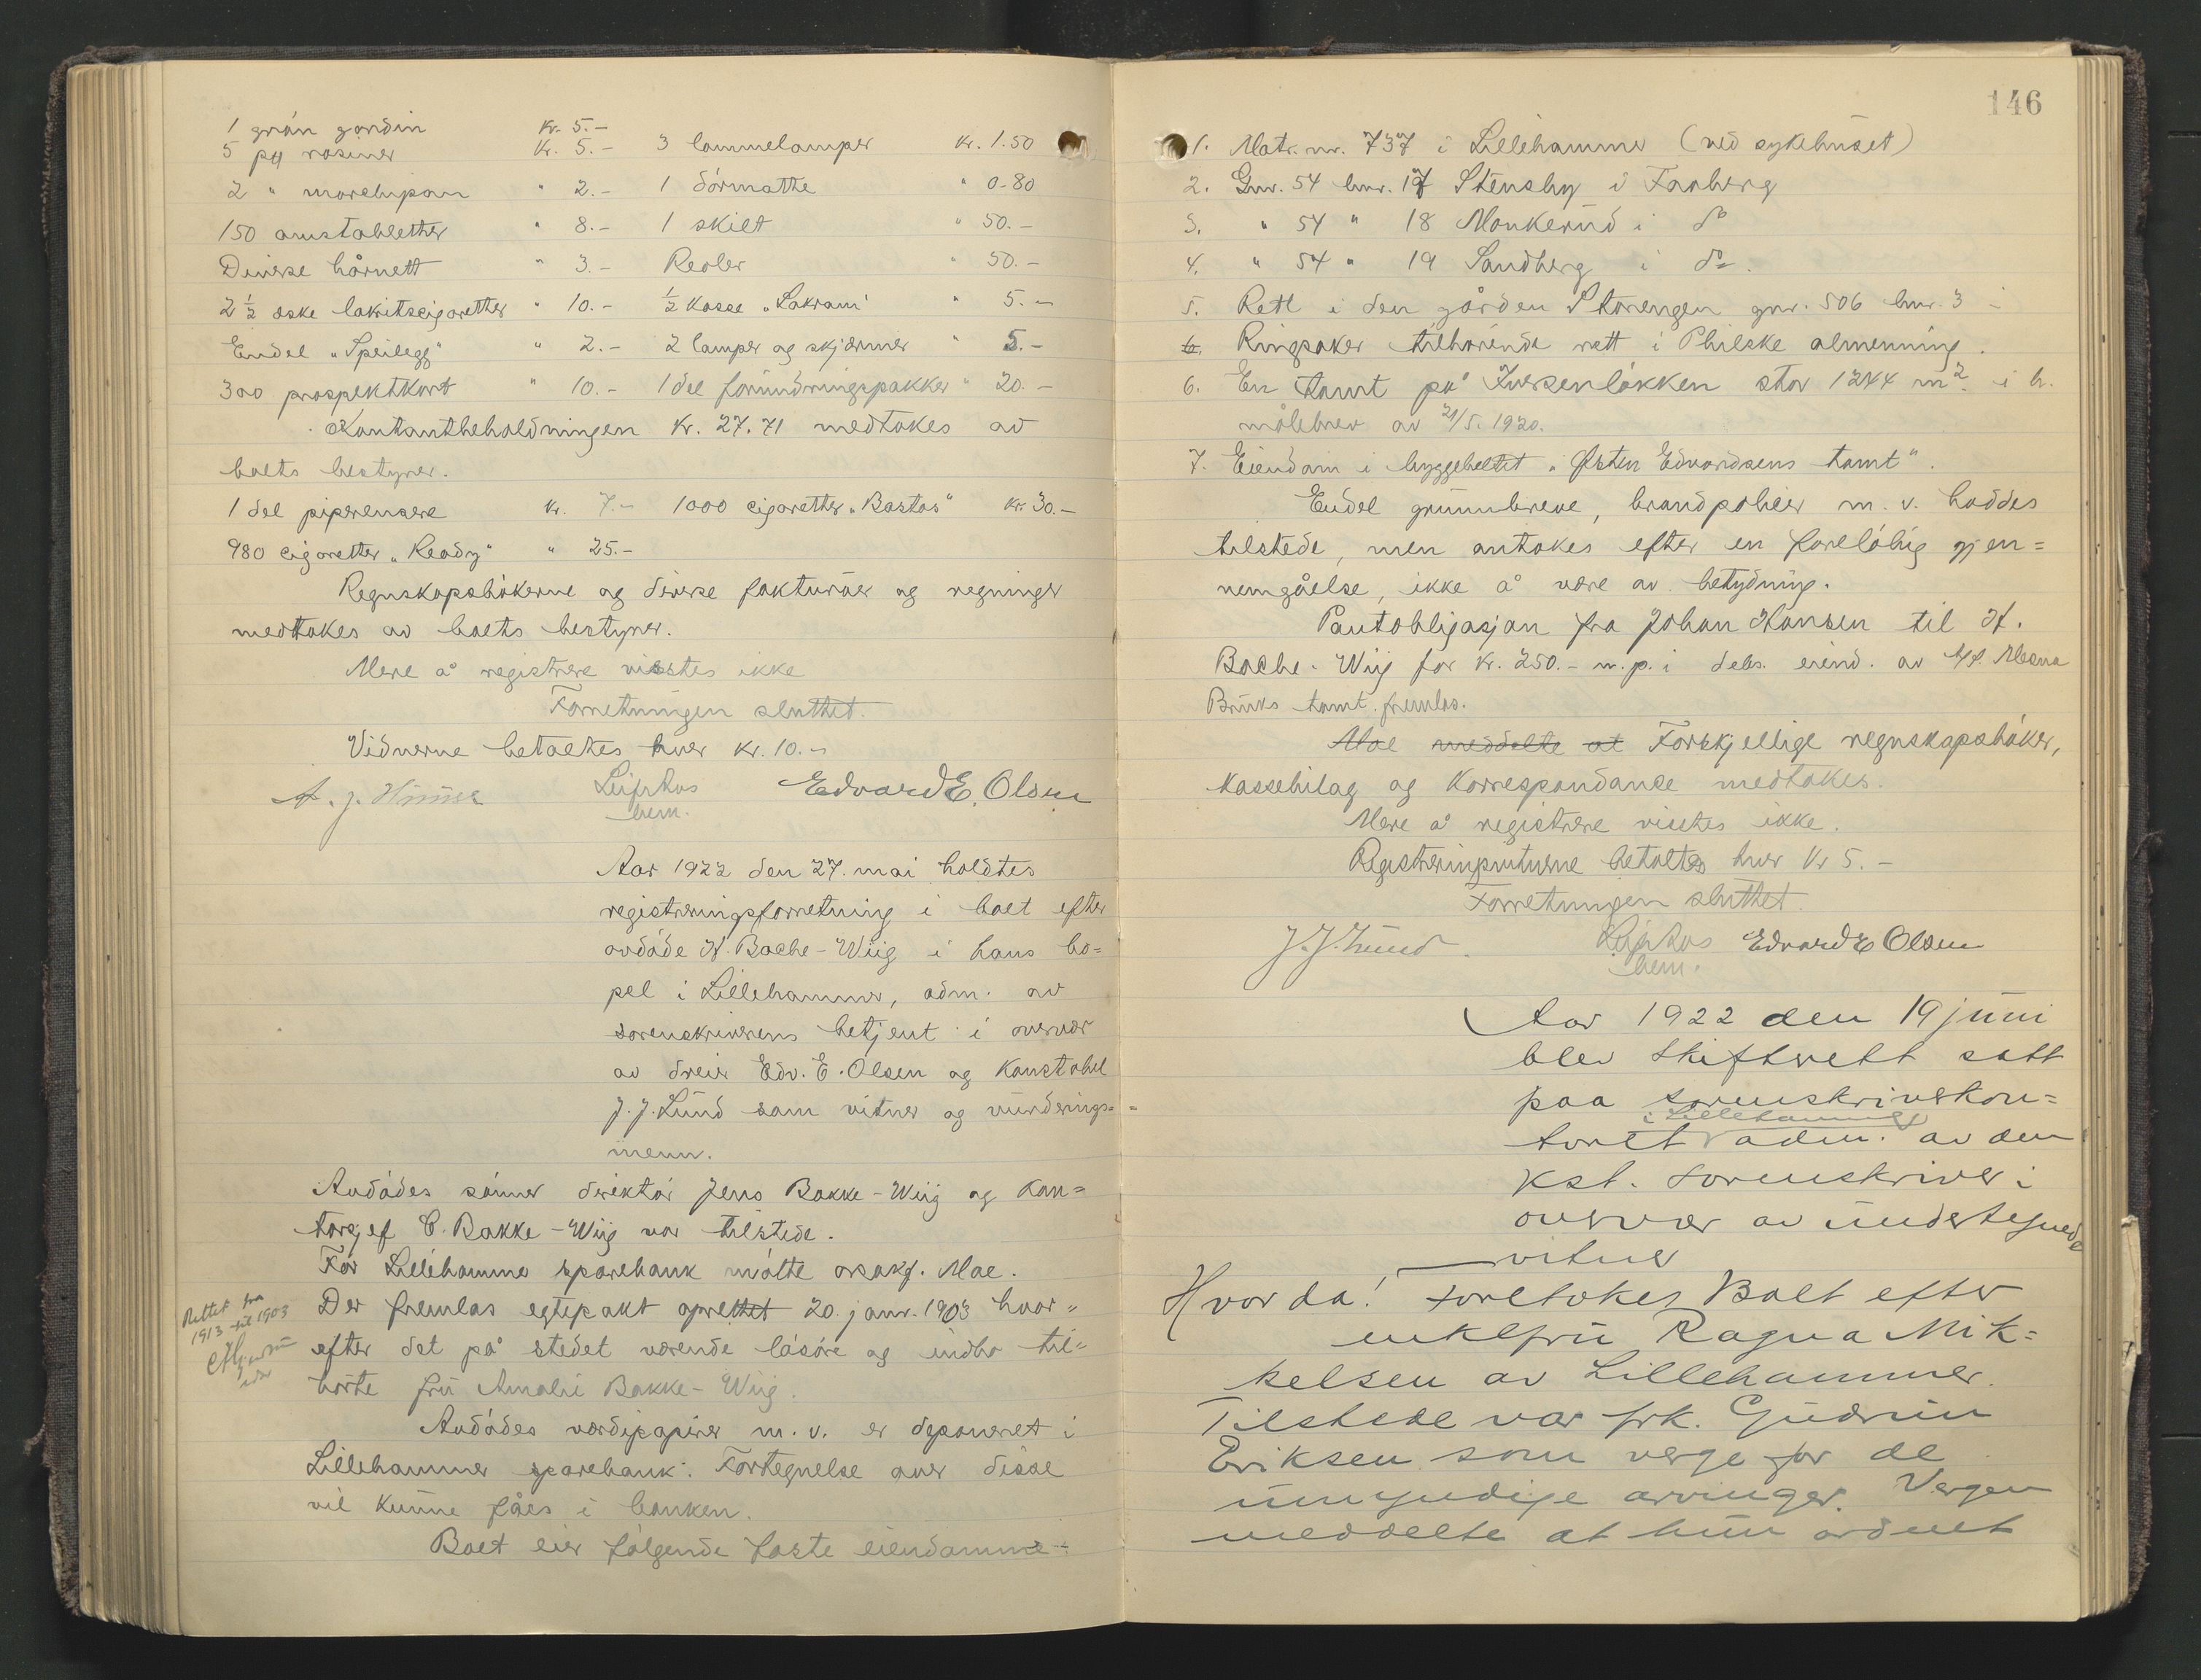 1 grøn gardin Kr. 5.-
5 pk rosiner Kr. 5.- 3 lommelamper Kr. 1.50
2 " marchipan " 2.- 1 dørmatte " 0-80
150 anistabletter " 8.- 1 skilt " 50.-
Diverse hårnett " 3.- Reoler " 50.-
2 1/2 eske lakritscigaretter " 10.- 1/2 kasse "Lakram" " 5.-
Endel "Speilegg" " 2.- 2 lamper og skjermer " 5.-
300 prospektkort " 10.- 1 del forundringspakker " 20.-
Kontantbeholdningen Kr. 27.71 medtokes av
boets bestyrer.
1 del piperensere Kr. 7.- 1000 cigaretter "Bastos" Kr 30.-
980 cigaretter "Ready" " 25.-
Regnskapsbøkerne og diverse fakturaer og regninger
medtokes av boets bestyrer.
Mere å registrere visstes ikke
Forretningen sluttet.
Vidnerne betaltes hver Kr. 10.-
Edvard E. Olsen
Aar 1922 den 27. mai holdtes
registreringsforretning i boet efter
avdøde H. Bache-Wiig i hans bo=
pel i Lillehammer, adm. av
sorenskriverens betjent i overvær
av dreier Edv. E. Olsen og Konstabel
J. J. Lund som vitner og vurderings=
menn.
Avdødes sønner direktør Jens Bakke-Wiig og kon=
torsjef C. Bakke-Wiig var tilstede.
For Lillehammer sparebank møtte osakf. Moe.
Der fremlas egtepakt oprettet 20. janr. 1903 hvor=
efter det på stedet værende løsøre og indbo til=
hørte fru Amalie Bakke-Wiig.
Rettet fra
1913 til 1903
Avdødes værdipapirer m.v. er deponeret i
Lillehammer sparebank. Fortegnelse over disse
vil kunne fåes i banken.
Boet eier følgende faste eiendomme:
146
1. Matr. nr. 737 i Lillehammer (ved sykehuset)
2. Gnr. 54 bnr. 17 Stensby i Faaberg
3. " 54 " 18 Monkerud i do
4. " 54 " 19 Sandberg i do.
5. Rett i den gården Storengen gnr. 506 bnr. 3 i
6. Ringsaker tilhørende rett i Philske almenning.
6. En tomt på Iversenløkken stor 1244 m². i h.
målebrev av 21/5. 1920.
7. Eiendom i byggebeltet "Østen Edvardsens tomt".
Endel grunnbreve, brandpolicer m.v. haddes
tilstede, men antokes efter en foreløbig gjen=
nemgåelse, ikke å være av betydning.
Pantobligasjon fra Johan Hansen til H.
Bache-Wiig for Kr. 250.- m.p. i debs. eiend. av A/S. Mesna
Bruks tomt. fremlas.
Moe meddelte at Forskjellige regnskapsbøker,
kassebilag og korrespondanse medtokes.
Mere å registrere visstes ikke.
Registreringsvitnerne betaltes hver Kr 5.-
Forretningen sluttet.
J. J. Lund Edvard E Olsen
Aar 1922 den 19 juni
blev skifterett satt
paa sorenskriverkon=
i Lillehammer
toret adm. av den
kst. sorenskriver i
overvær av undertegnede
vitner
Hvorda! Foretokes Boet efter
enkefru Ragna Mik=
kelsen av Lillehammer.
Tilstede var frk. Gudrun
Eriksen som verge for de
umyndige arvinger. Vergen
meddelte at hun ordnet